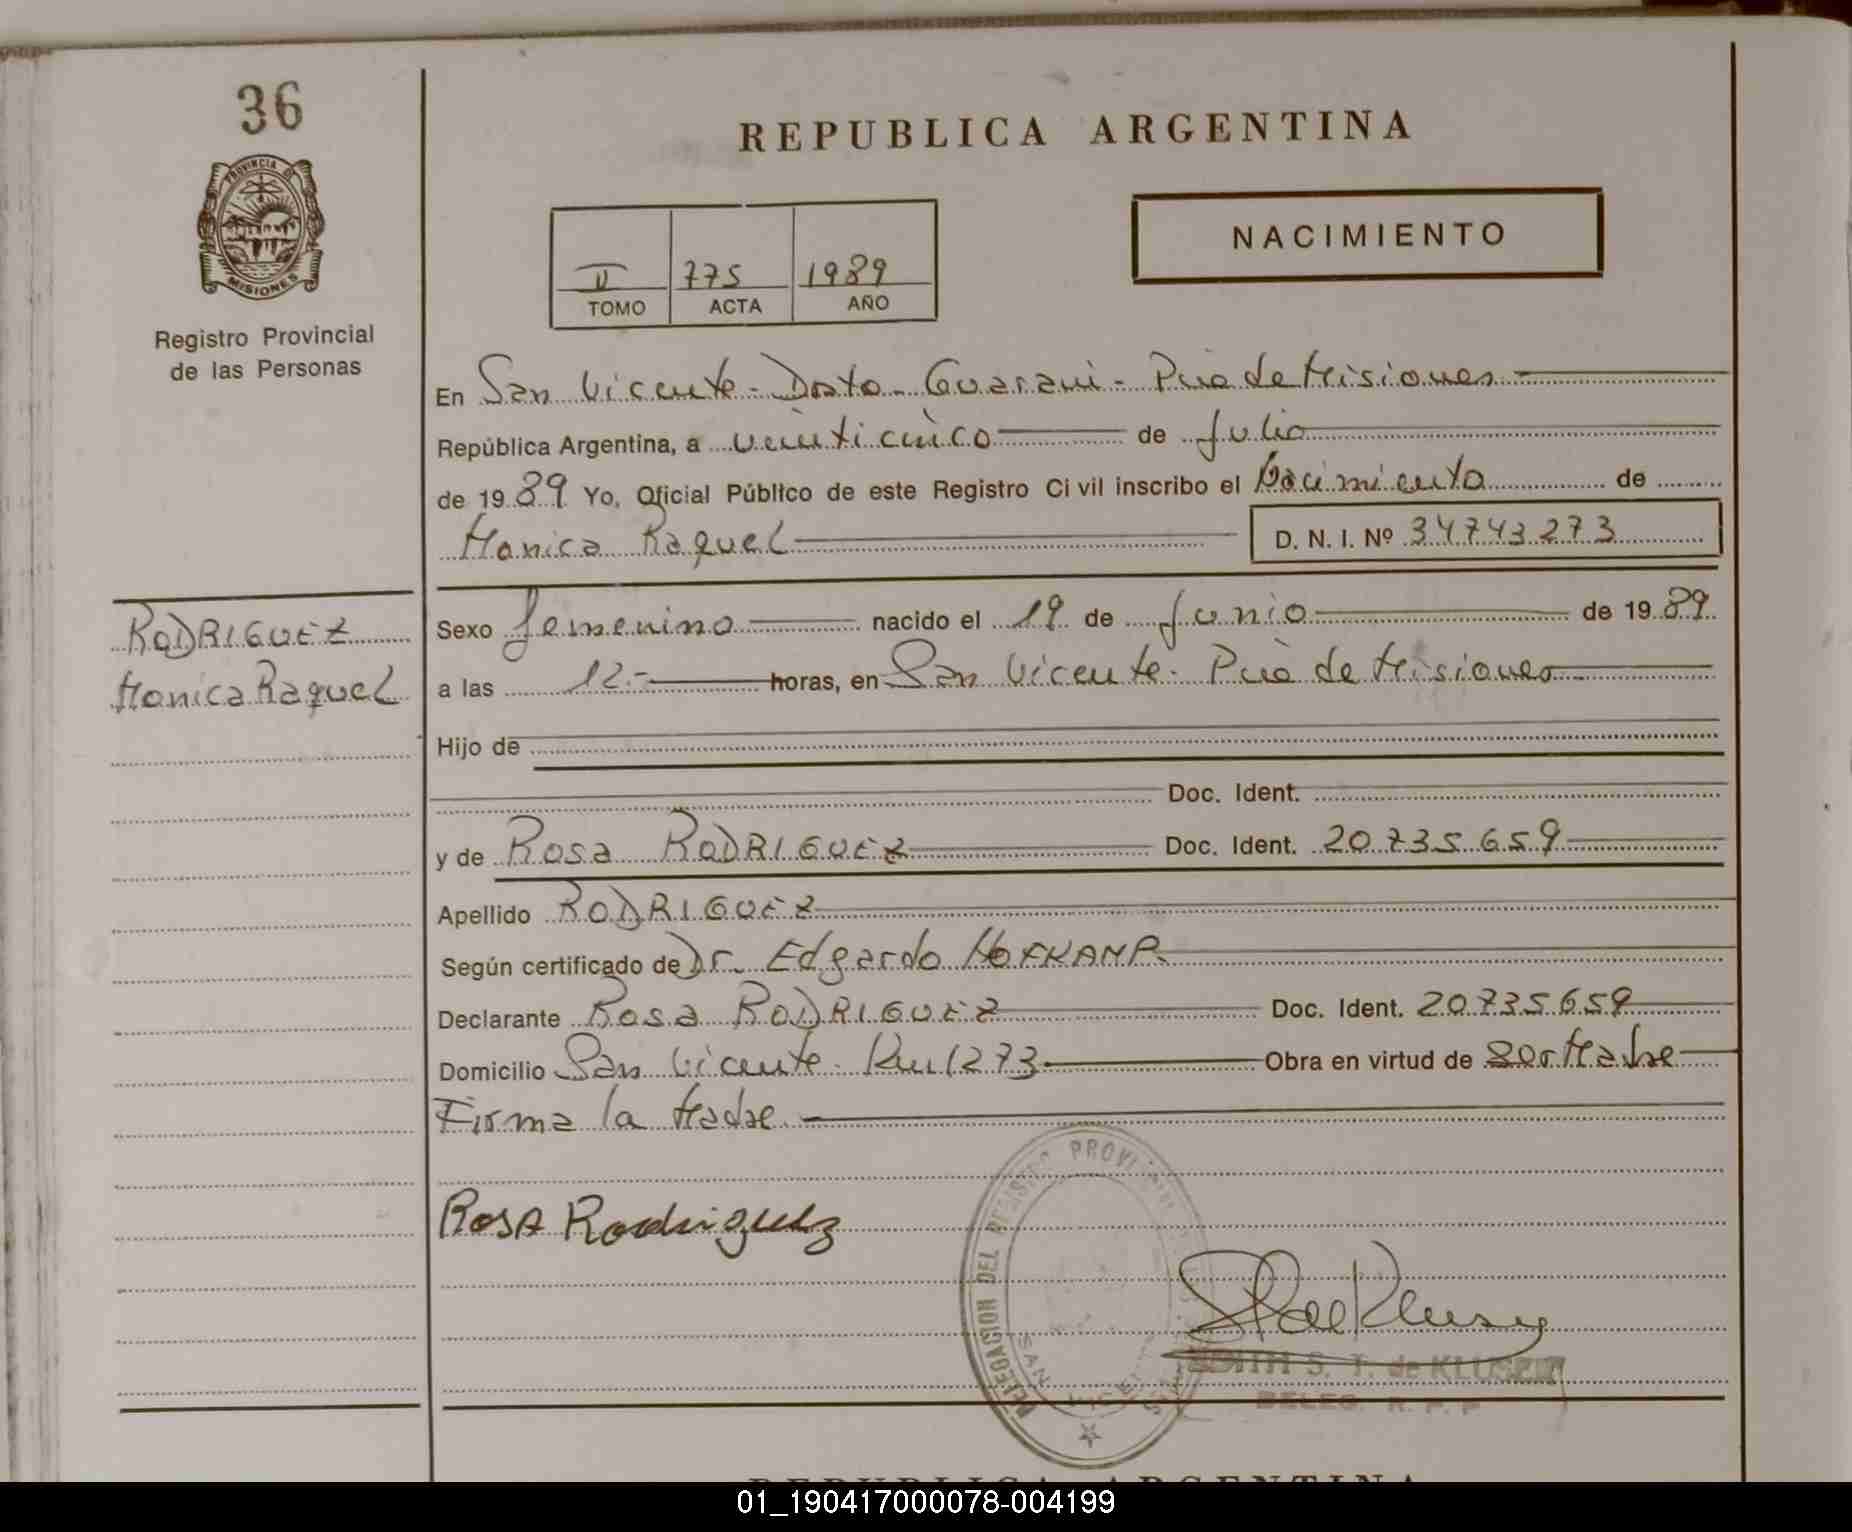 36
PROVINCIA DE
MISIONES
Registro Provincial
de las Personas
RODRIGUEZ
Monica Raquel
REPUBLICA ARGENTINA
NACIMIENTO
II 775 1989
TOMO ACTA AÑO
En San Vicente - Dpto - Guarani - Pcia de Misiones
República Argentina, a veinticinco de Julio
de 1989 Yo, Oficial Público de este Registro Civil inscribo el Nacimiento de
Monica Raquel D. N. I. Nº 34743273
Sexo femenino nacido el 19 de Junio de 1989
a las 12.- horas, en San Vicente - Pcia de Misiones
Hijo de
Doc. Ident.
y de Rosa RODRIGUEZ Doc. Ident. 20.735.659
Apellido RODRIGUEZ
Según certificado de Dr. Edgardo HOFKAMP.
Declarante Rosa RODRIGUEZ Doc. Ident. 20.735.659
Domicilio San Vicente - Km 1273 Obra en virtud de Ser Madre
Firma la Madre.
Rosa Rodriguez
DELEGACION DEL REGISTRO PROVINCIAL
SAN VICENTE
EDITH S. T. de KLUSEN
DELEG. R. P. P
REPUBLICA ARGENTINA
01_190417000078-004199